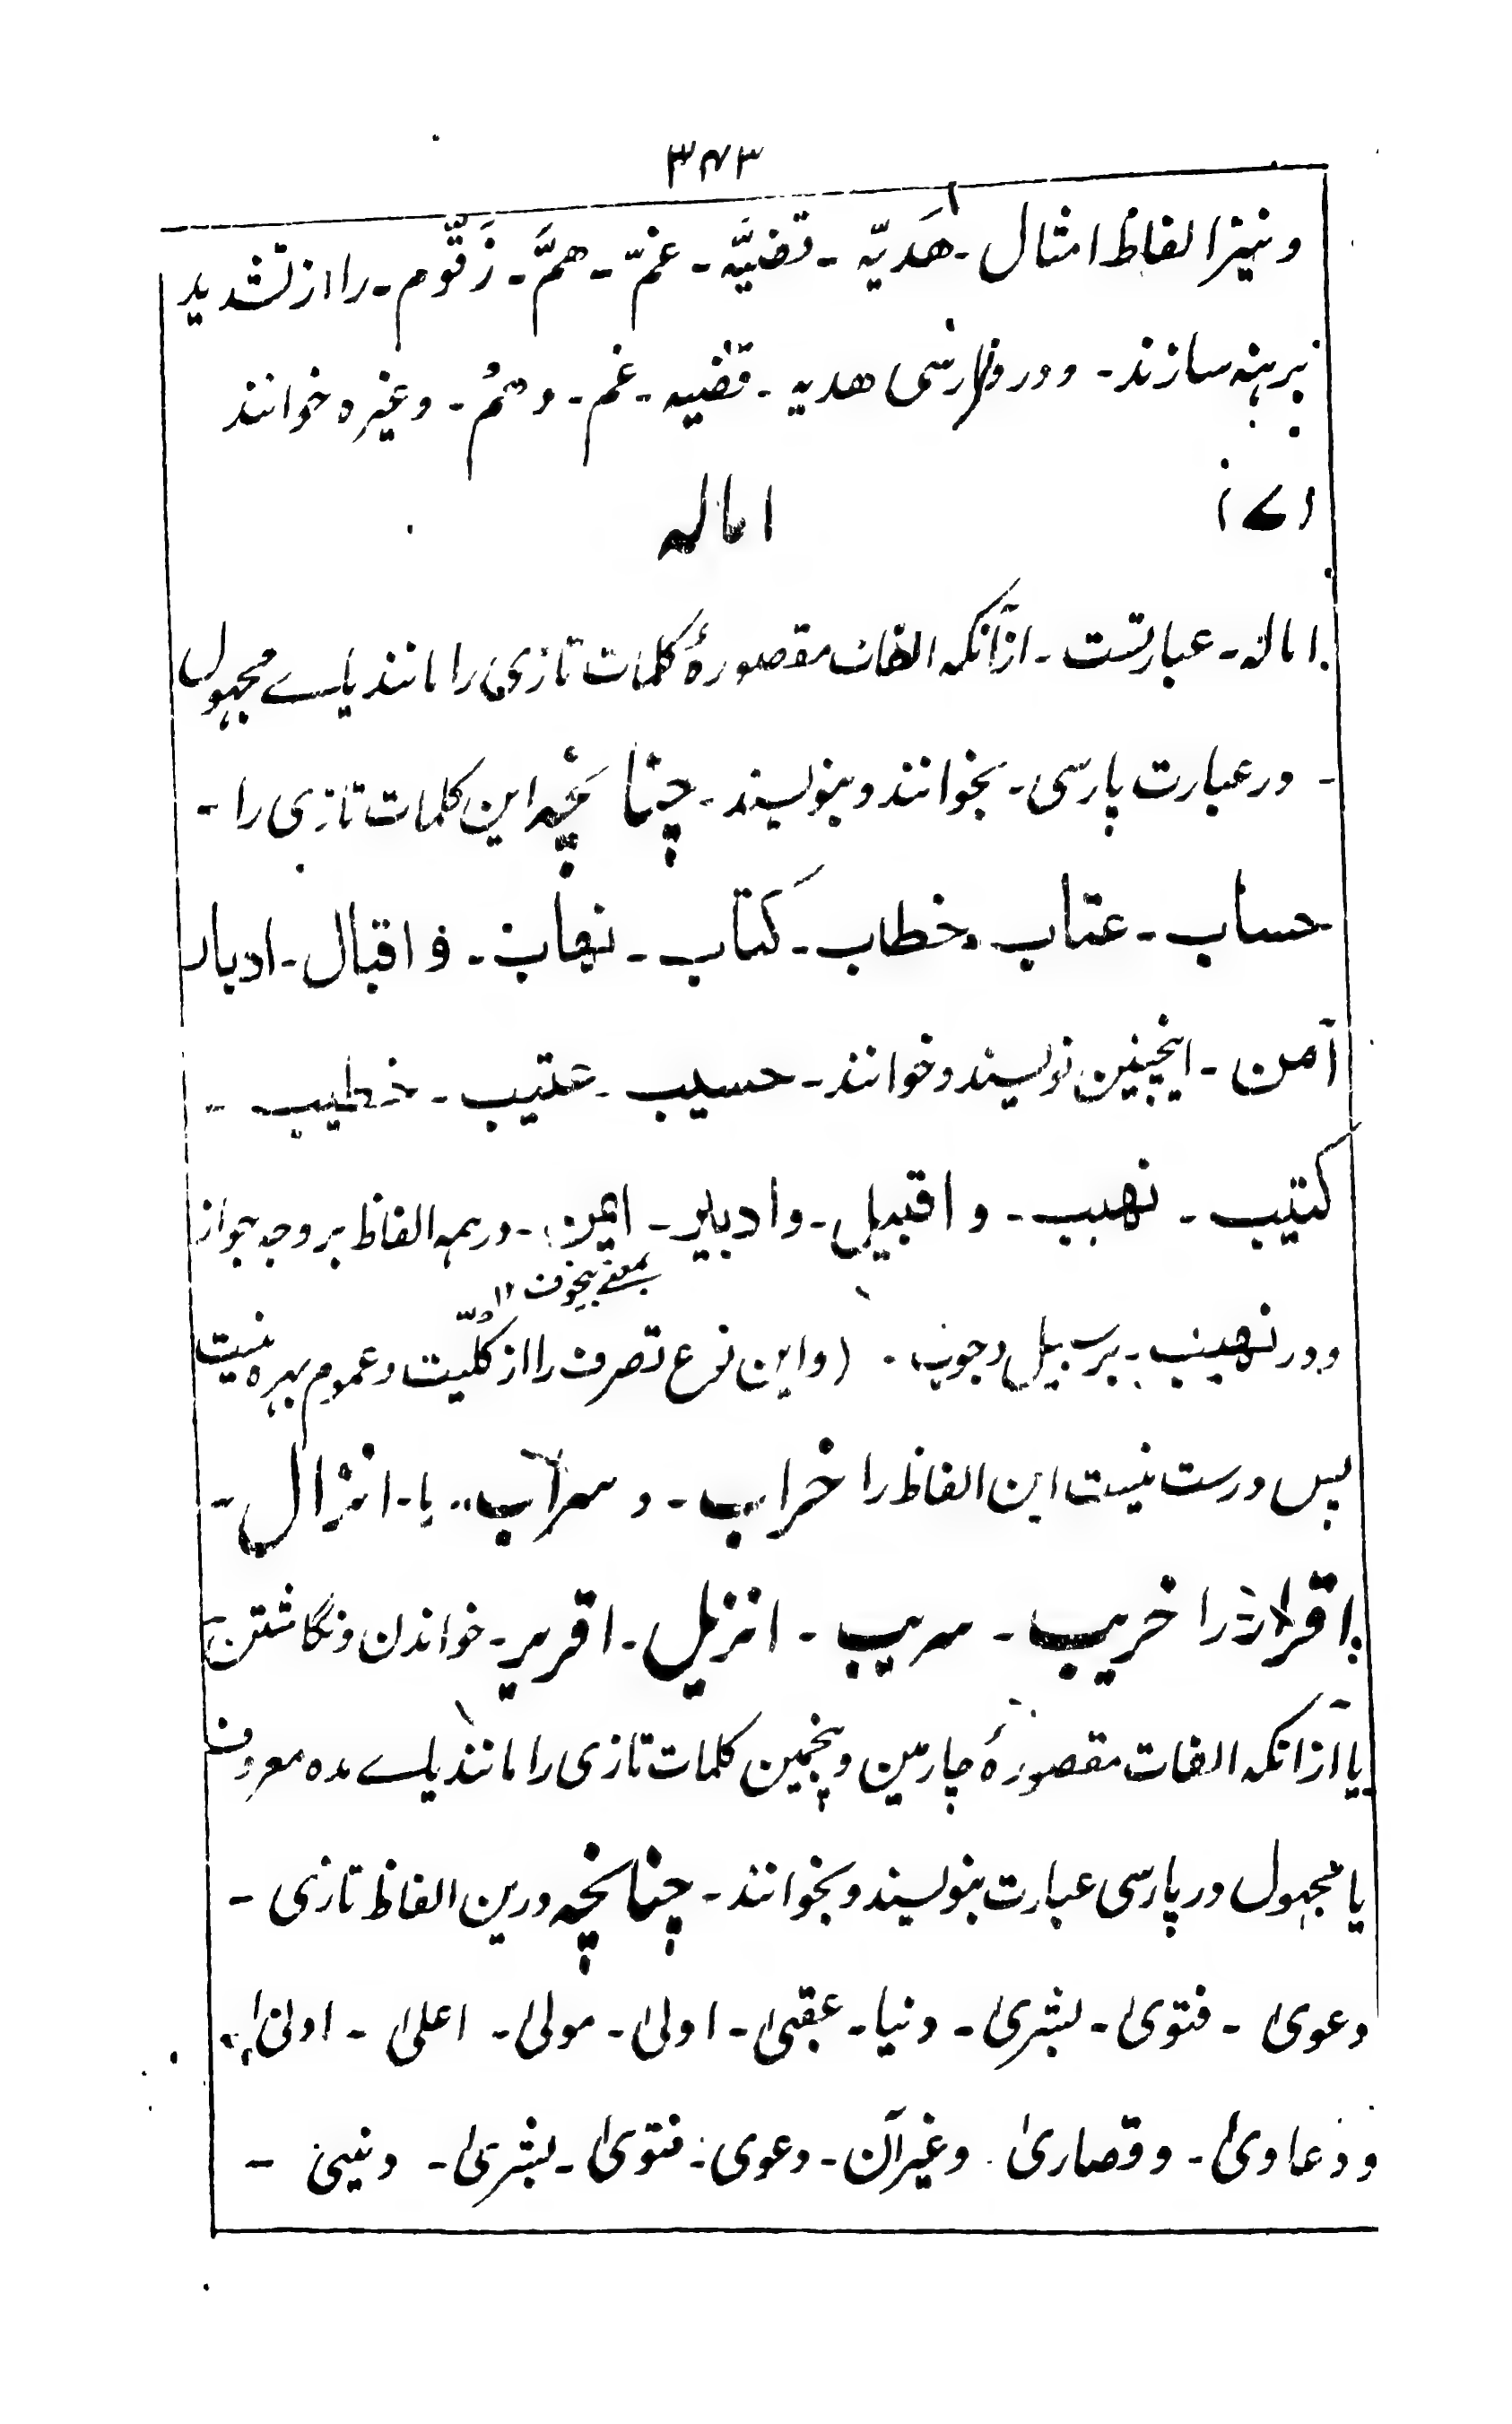 ۳۴۳
ونیز الفاظ امثال - هَدیّه - قضیَّه - غمّ - همَّ - زَقّوم - را از تشدید
برهنه سازند - و در فارسی هدیه - قضیه - غم - وهم - وغیره خوانند
(۷) اماله
اماله - عبارتست - ازآنکه الفات مقصورهٔ کلمات تازی را مانند یاے مجہول
- در عبارت پارسی - بخوانند و بنویسند - چنانچه این کلمات تازی را -
حساب - عتاب - خطاب - کتاب - نهاب - و اقبال - ادبار
آمن - اینچنین نویسند و خوانند - حسیب - عتیب - خطیب -
کتیب - نهیب - و اقبیل - و ادبیر - ایمن - در ہمہ الفاظ بر وجہ جواز
بمعنے بیخوف ۱۲
و در نهیب - بر سبیل وجوب - (و این نوع تصرف را از کلیّت و عموم بہرہ نیست
پس درست نیست این الفاظ را خراب - و سراب - یا - انزال -
اقرار را خریب - سریب - انزیل - اقریر - خواندن و نگاشتن
یا ازآنکه الفات مقصورهٔ چارمین و پنجمین کلمات تازی را مانند یاے مده معروف
یا مجہول در پارسی عبارت بنویسند و بخوانند - چنانچه درین الفاظ تازی -
دعویٰ - فتویٰ - بشریٰ - دنیا - عقبیٰ - اولیٰ - مولیٰ - اعلیٰ - ادنیٰ
و دعاویٰ - و قصاریٰ - و غیر آن - دعوی - فتوی - بشری - دنیی -